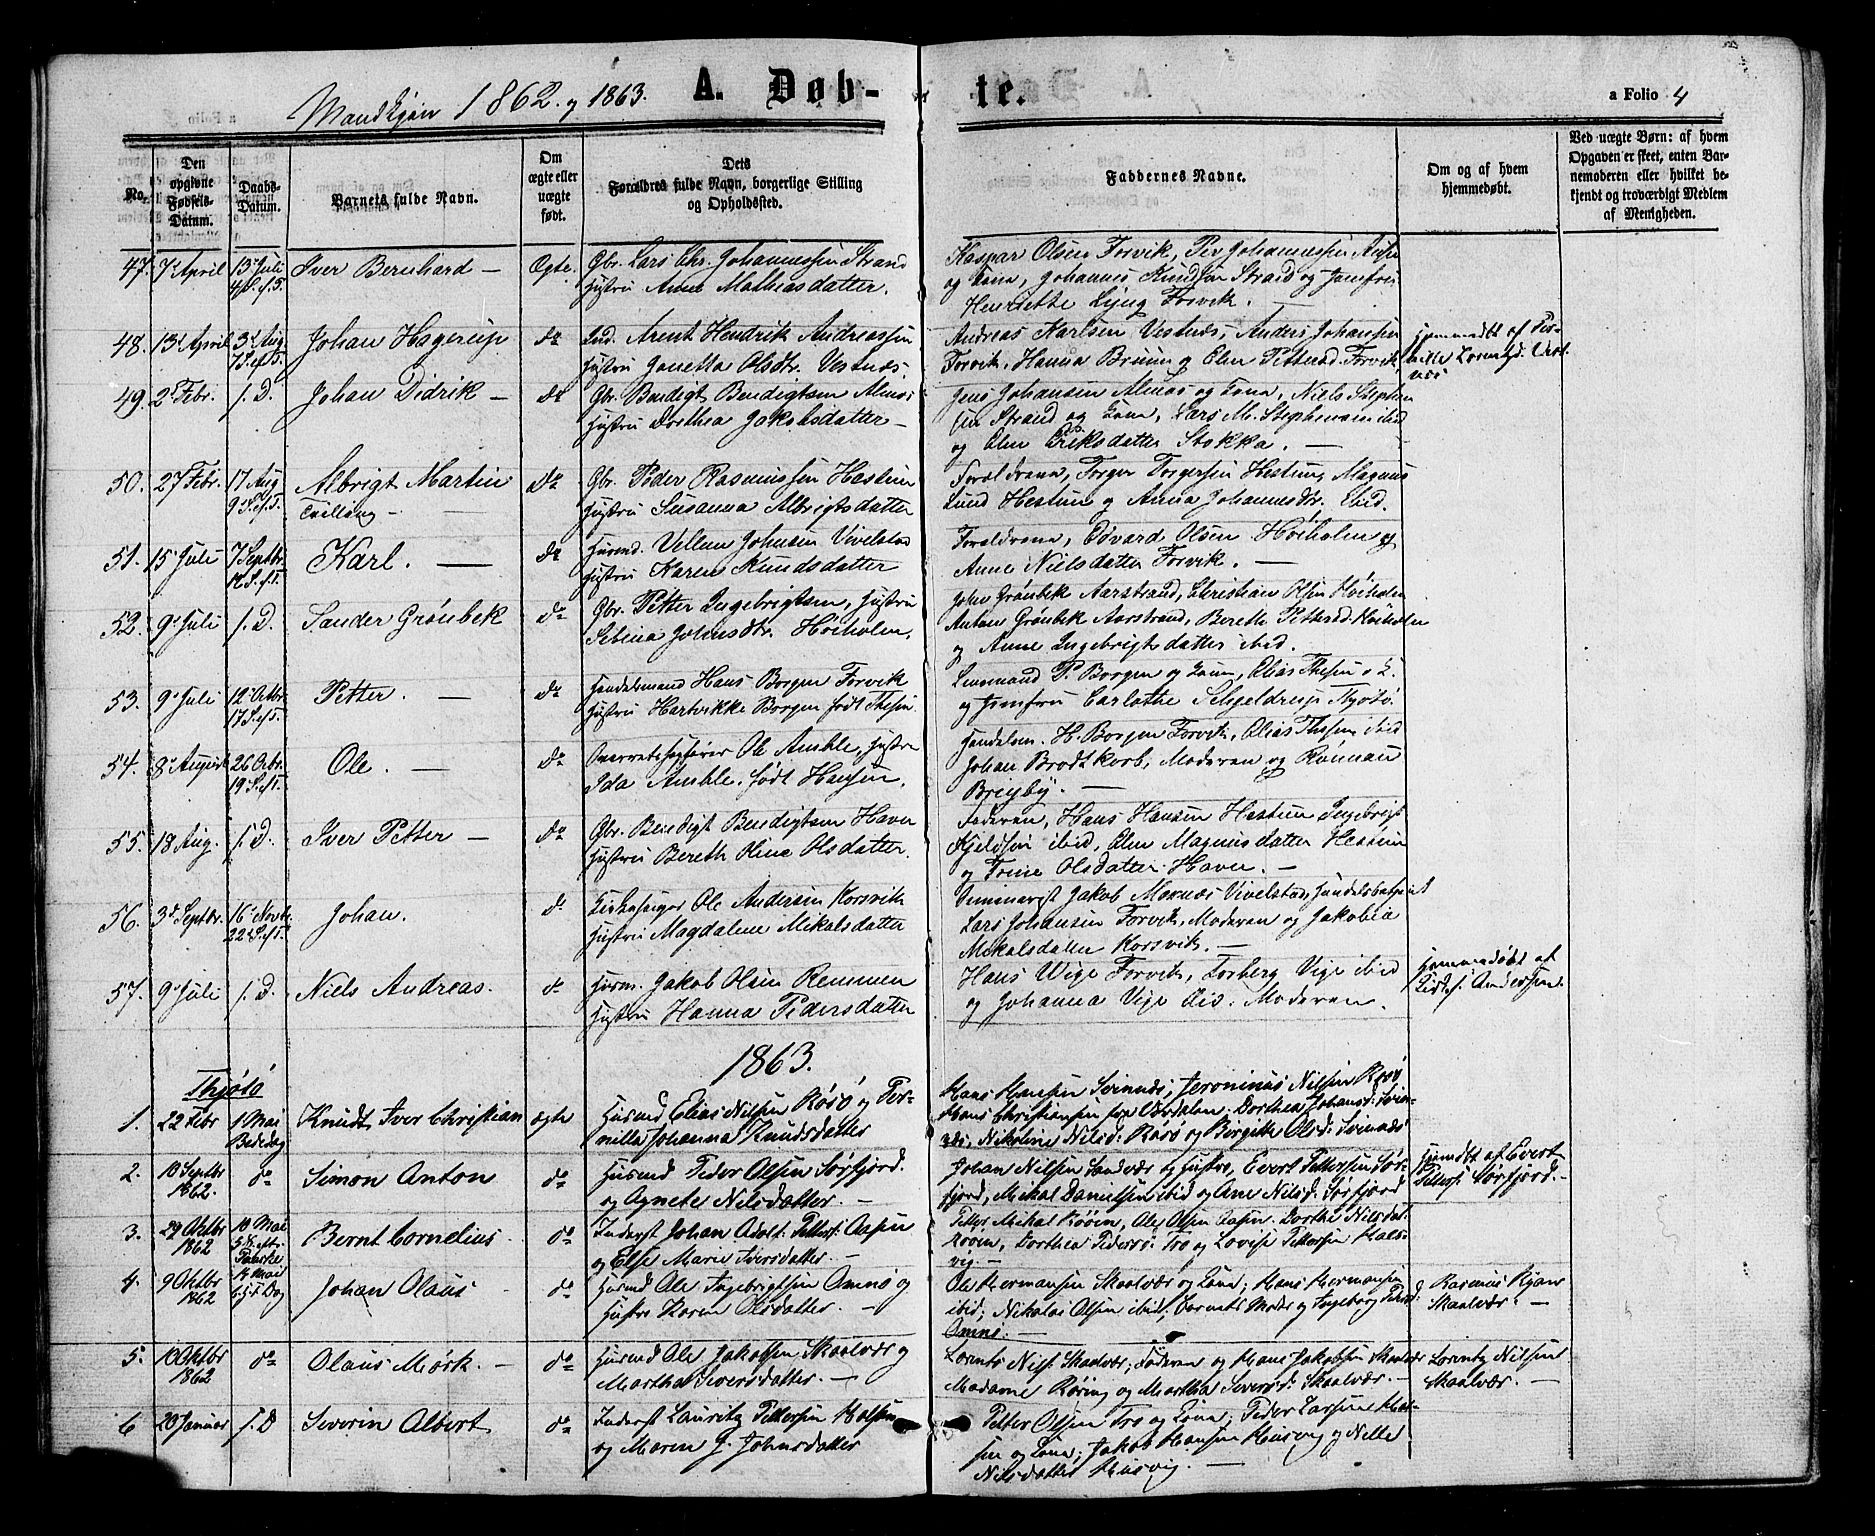 Mandkjøn 1862 og 1863.
A. Døb-
te.
a Folio 4
No.
Den opgivne Fødsels-Datum.
Daabs-Datum.
Barnets fulde Navn.
Om ægte eller uægte født.
Dets Forældres fulde Navn, borgerlige Stilling og Opholdssted.
Faddernes Navne.
Om og af hvem hjemmedøbt.
Ved uægte Børn: af hvem Opgaven er skeet, enten Barnemoderen eller hvilket bekjendt og troværdigt Medlem af Menigheden.
47. 7 April 13 Juli 4 S. e. T. Iver Bernhard — Ægte. Gbr. Lars Chr. Johannessen Strand
Hustru Anne Mathiasdatter.
Kaspar Olsen Forvik, Per Johannessen
og Kone, Johannes Knudsen Strand og Jomfru
Henriette Ljng Forvik. —
48. 13 April 3 Aug 7 S. e. T. Johan Hagerup do Ind. Arent Hendrik Andreassen
Hustru Janetta Olsdtr. Vesnes.
Andreas Karlsen Vesnes, Anders Johansen
Forvik, Hanna Bruun og Elen Pettersd. Forvik
hjemmedbt af Per-
nille Lorentzd.
49. 2 Febr. s. D. Johan Didrik — do Gbr. Bendigt Bendigtsen Alnæs
Hustru Dorthea Jakobsdatter —
Jens Johansen Alnæs og Kone, Niels Stephan
sen Strand og Kone, Lars M. Stephansen ibid
og Elen Eriksdatter Stokka. —
50. 27 Febr. 17 Aug 9 S. e. T. Albrigt Martin do Gbr. Peder Rasmussen Hestun
Tvilling — Hustru Susanna Albrigtsdatter
Forældrene, Torger Torgersen Hestun, Magnus
Lund Hestun og Anna Johannesdtr. ibid.
51. 15 Juli 7 Septbr. 12 S. e. T. Karl. — do Husmd. Vellum Johnsen Vivelstad
Hustru Karen Knudsdatter
Forældrene, Edvard Olsen Høiholm og
Anne Nielsdatter Forvik. —
52. 9 Juli s. D. Sander Grønbek do Gbr. Petter Ingebrigtsen, Hustru
Sebina Johnsdtr. Høiholm.
John Grønbek Aarstrand, Christian Olsen Høiholm
Anton Grønbek Aarstrand, Bereth Pettersd. Høiholm
og Anne Ingebrigtsdatter ibid.
53. 9 Juli 12 Octbr. 17 S. e. T. Petter. — do Handelsmand Hans Borgen Forvik
Hustru Hartvikke Borgen født Thesen.
Lensmand P. Borgen og Kone, Elias Thesen
og Jomfru Carlothe Schjeldrup Thjøtø.
54. 8 August 26 Octbr. 19 S. e. T. Ole. — do Overretssagfører Ole Amble, Hustru
Ida Amble født Hansen.
Handelsm. H. Borgen Forvik, Elias Thesen ibid
Johan Brodtkorb, Moderen og Rønnau
Brejby. —
55. 18 Aug. s. D. Iver Petter — do Gbr. Bendigt Bendigtsen Haver
Hustru Bereth Oline Olsdatter.
Faderen, Hans Hansen Hestun Ingebrigt
Kjeldsen ibid, Elen Magnusdatter Hestun
og Trine Olsdatter Haver. —
56. 3 Septbr. 16 Novbr. 22 S. e. T. Johan. do Kirkesanger Ole Andersen Korsvik
Hustru Magdalene Mikalsdatter
Seminarist Jakob Mornæs Vivelstad, Handelsbetjent
Lars Johansen Forvik, Moderen og Jakobia
Mikalsdatter Korsvik. —
57. 9 Juli s. D. Niels Andreas. do Husm. Jakob Olsen Remmen
Hustru Hanna Pedersdatter
Hans Vige Forvik, Torberg Vige ibid
og Johanna Vige ibid. Moderen.
hjemmedøbt af
Kirkes. Andersen.
1863.
Thjøtø
1. 22 Febr 1 Mai Bededag Knudt Iver Christian ægte Husmd Elias Nilsen Røsø og Per-
nilla Johanna Knudsdatter
Hans Hansen Svinnæs; Jeronimus Nilsen Røsø
Hans Christiansen Verdalen; Dorthea Johansd: Svin-
næs; Nikoline Nilsd: Røsø og Birgitte Olsd: Svinnæs
2. 10 Septbr 1862. do Simon Anton do Husmd Peder Olsen Sørfjord.
og Agnete Nilsdatter. —
Johan Nilsen Sandvær og Hustro, Evert Pettersen Sør-
fjord, Mikal Danielsen ibid og Ane Nilsd: Sørfjord
Hjemdt af Evert
Petters: Sørfjord. —
3. 29 Oktbr 1862 10 Mai 5 S. efter Paaske Bernt Cornelius do Inderst Johan Adolf Petters: Aasen
og Else Marie Iversdatter. —
Petter Mikal Røøen, Ole Olsen Aasen. Dorthe Nilsdat.
Røøen, Dorthea Peders: Tro og Lovise Pettersen Hals-
vig. —
4. 9 Oktbr 1862 14 Mai Johan Olaus do Husmd Ole Ingebrigtsen Omnø og
Hustro Karen Olsdatter. —
Ole Hermansen Skaalvær og Kone; Hans Hermansen
ibid; Nikolai Olsen ibid; Barnets Moder og Ingeborg Pedersd:
Omnø. —
Rasmus
Skaalvær. —
5. 10 Oktbr 1862 do Olaus Mørk. — do Husmd Ole Jakobsen Skaalvær og
Martha Siversdatter. —
Lorents Nils: Skaalvær; Faderen og Hans Jakobsen Skaalvær
Madame Røring og Martha Siversd: Skaalvær. —
Lorentz Nilsen
Skaalvær. —
6 20 Januar s. D Severin Albert do Inderst Lauritz Pettersen Halsen
og Maren J. Johnsdatter
Petter Olsen Tro og Kone; Peder Larsen Hal-
sen og Kone; Jakob Hansen Husvig og Nelle
Nilsdatter Husvig. —